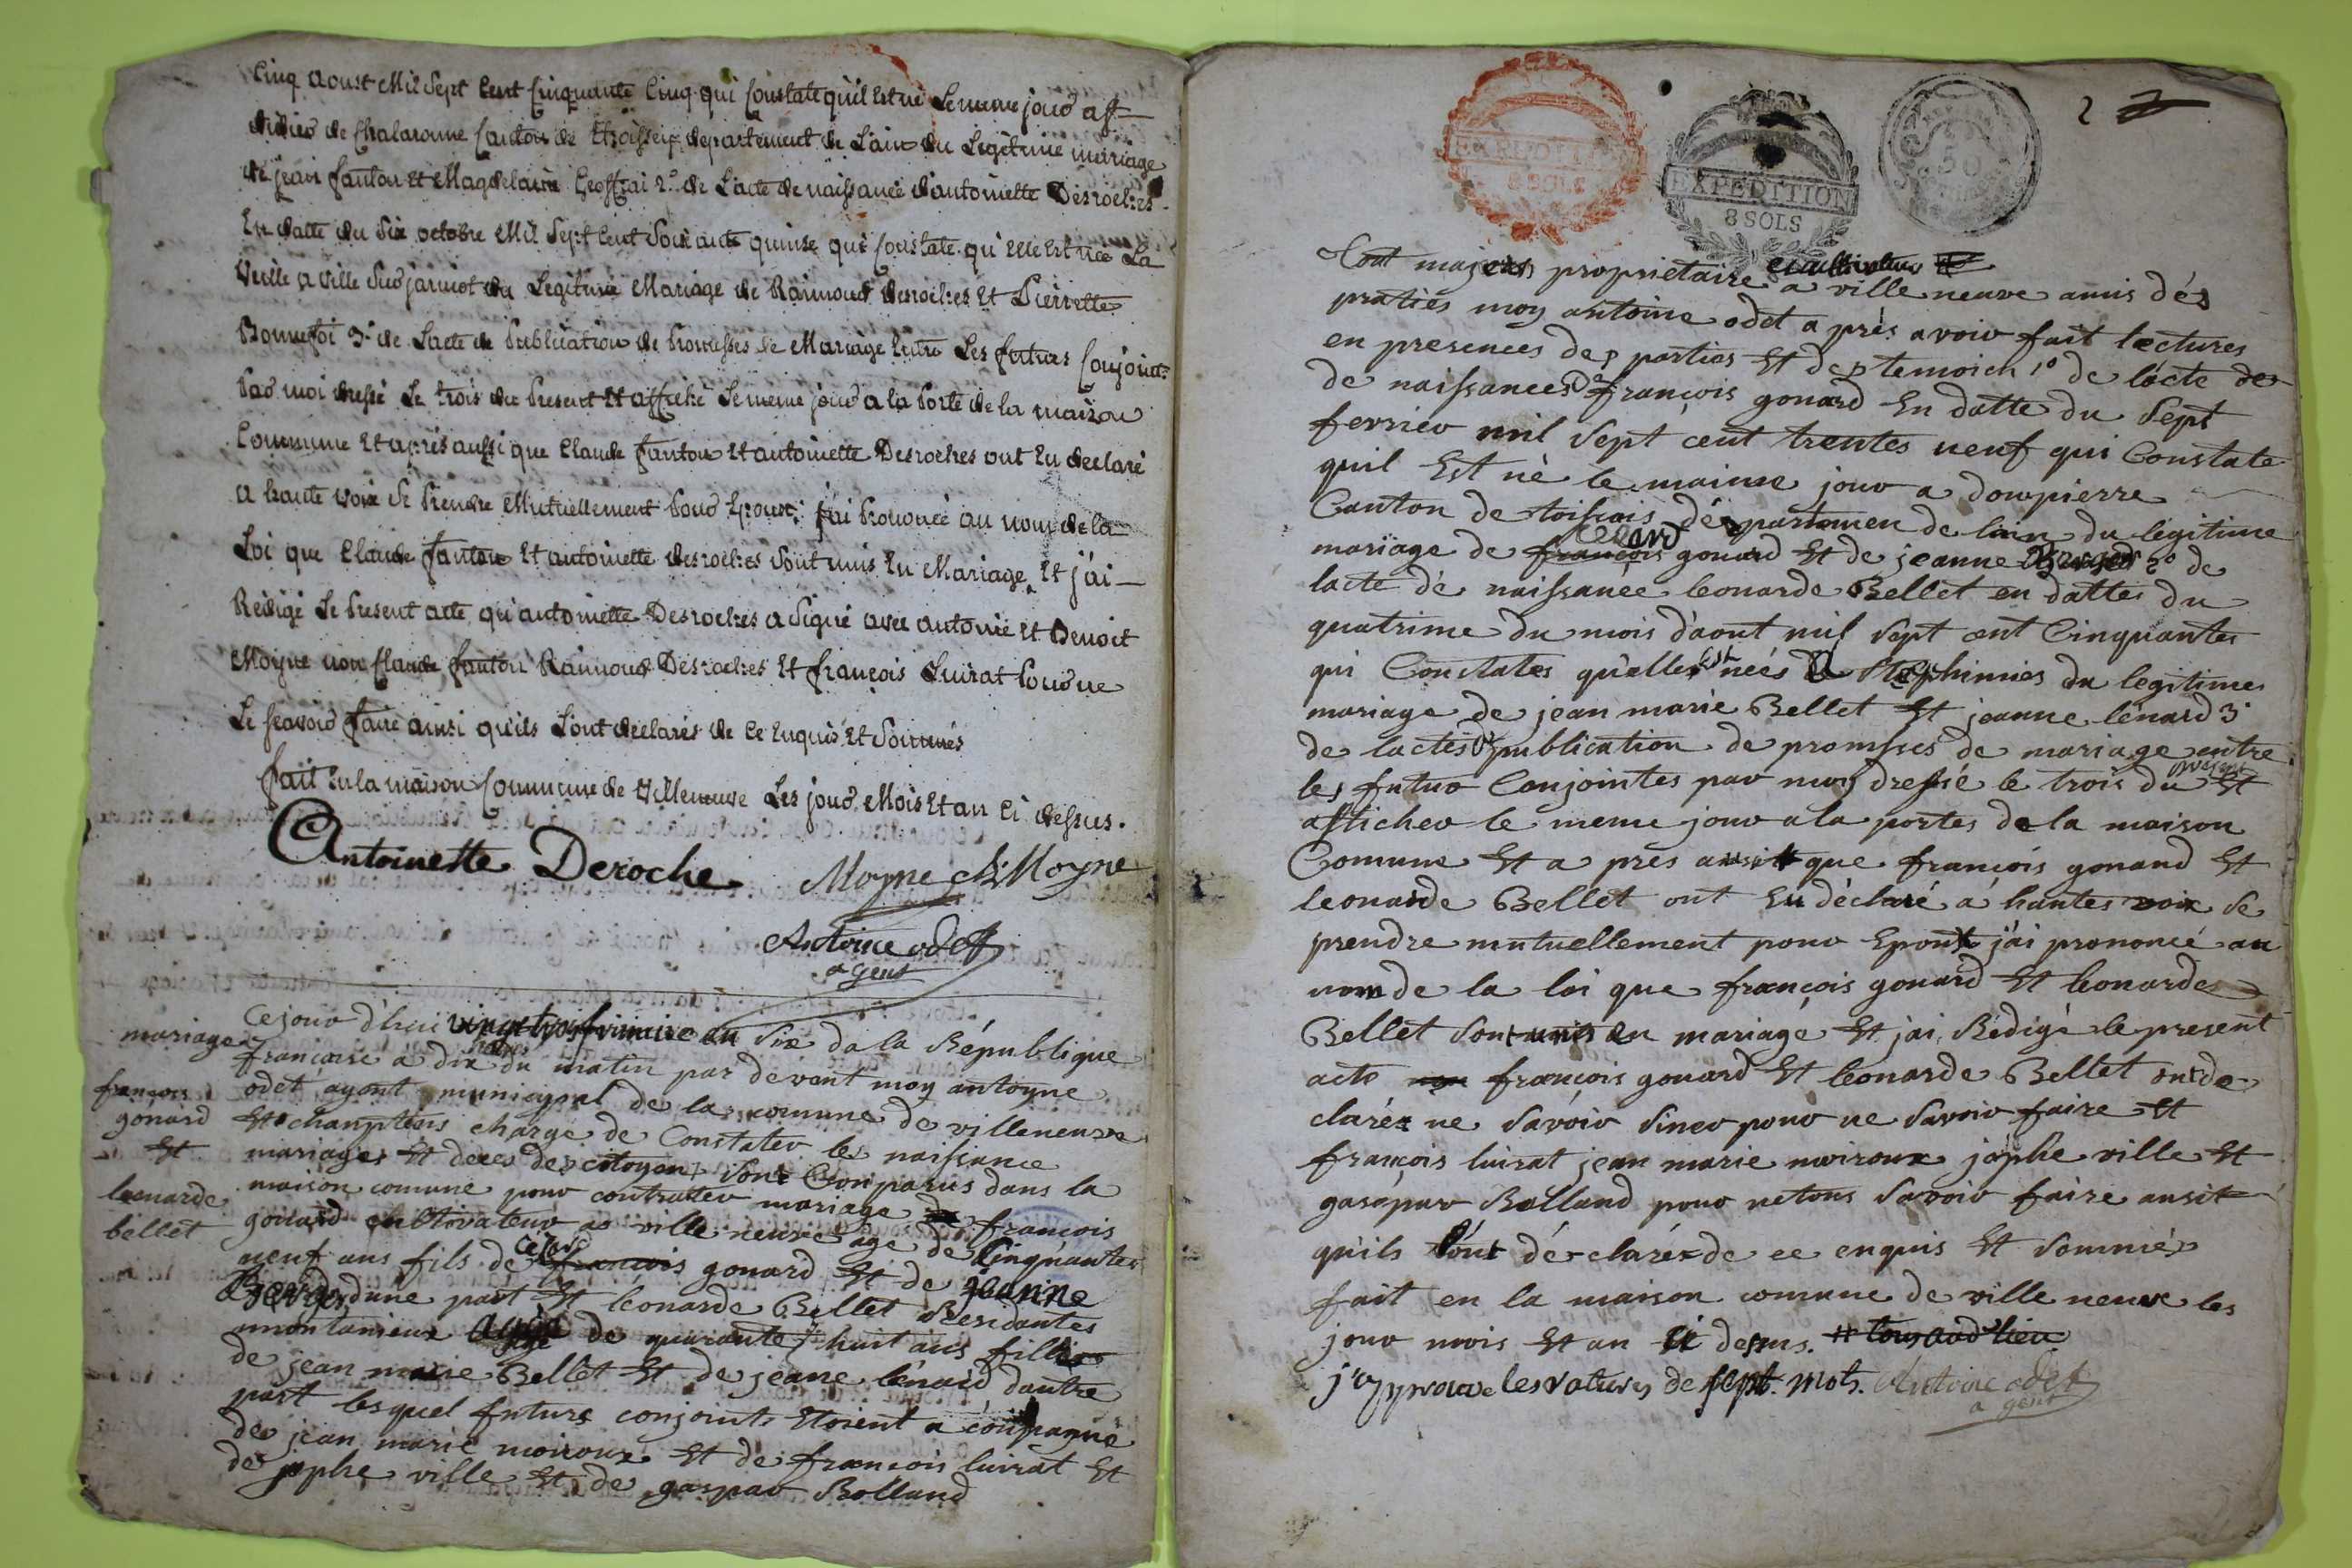 Cinq aoust Mil Sept Cent Cinquante Cinq qui Constate qu'il Est né Le meme jour a St
didier de Chalaronne Canton de thoissey departement de L'ain du Legitime mariage
de jean fanton Et Magdelaine Geoffrai 2.° de L'acte de naissance d'antoinette Desroches
En datte du Six octobre Mil Sept Cent Soixante quinse qui Constate qu'Elle Est née La
Veille a Ville Sur jarniot du Legitime Mariage de Raimond desroches Et Pierrette
Bonnefoi 3.° de L'acte de Publication de Promesses de Mariage Entre Les futurs Conjoints
Par moi dressé Le trois du Present Et affiché Le meme jour a la Porte de la maison
Commune Et après aussi que Claude fanton Et antoinette Desroches ont Eu declaré
a haute voix Se Prendre Mutuellement Pour Epoux: j'ai Prononcé au nom de la
Loi que Claude fanton Et antoinette desroches Sont unis En Mariage, Et j'ai
Rédigé Le Present acte qu'antoinette Desroches a Signé avec antoine Et Benoit
Moyne non Claude fanton Raimond Desroches Et françois Luirat Pour ne
Le scavoir faire ainsi qu'ils L'ont declarés de Ce Enquis Et Sommés
fait En la maison Commune de Villeneuve Les jour Mois Et an Ci dessus.
Antoinette Deroche Moyne B Moyne
Antoine odet
agent
mariage
françois
gonard
Et
leonarde
bellet
Ce jour d'hui vingt trois frimaire an Six da la République
francaise a dix heures du matin par devent moy antoyne
odet agant municypal de la comune de villeneuve
Et chanpteins charge de Constater les naissance
mariages Et deces des citoyens sont Conparus dans la
maison comune pour contratter mariage françois
gonard cultivateur a ville neuve age de Cinquantes
neuf ans fils de Cesard françois gonard Et de jeanne
Berger dune part Et léonarde Bellet Residantes
a montanieux agée de quarante huit ans filles
de jean marie Bellet Et de jeane lénard dautre
part lesquel futurs conjoints Etoient a conpagné
de jean marie moiroux Et de françois luirat Et
de jophe ville Et de gaspar Bolland
2
EXPEDITION
8 SOLS
EXPEDITION
8 SOLS
50
Tout majeurs propriétaire cultivateurs a ville neuve amis dés
pratiés moy antoine odet a près avoir fait lectures
en presences des parties Et des temoien 1° de lácte de
de naissances de françois gonard En datte du Sept
fevrier mil Sept cent trentes neuf qui Constate
quil Est né le mainme jour a dompierre
Canton de toissais départemen de lain du légitime
mariage de Cesard françois gonard Et de jeanne Berger 2° de
lacte dé naissance leonarde Bellet en dattes du
quatrime du mois d'aout mil Sept cent Cinquantes
qui Constates qu'elles Est néés du legitime
mariage de jean marie Bellet Et jeanne lénard 3°
de lactes de publication de promsses de mariage entre
les futur Conjointes par moy dressé le trois du present Et
afficher le meme jour a la portes de la maison
Comune Et a près ausit que françois gonard Et
leonarde Bellet ont Eu déclaré a hautes voix Se
prendre mutuellement pour Epoux j'ai prononcé au
nom de la loi que françois gonard Et leonardes
Bellet Sont unis en mariage Et jai Rédigé le present
acte non françois gonard Et leonarde Bellet ont de
clarés ne Savoir Siner pour ne Savoir faire Et
françois luirat jean marie moiroux jophe ville Et
gaspar Bolland pour ne tous Savoir faire ausit
qu'ils l'ónt dé-clarés de ce enquis Et Sommés
fait en la maison comune de ville neuve les
jour mois Et an Ci desus.
j'apprauve les ratures de sept mots. Antoine odet
agent